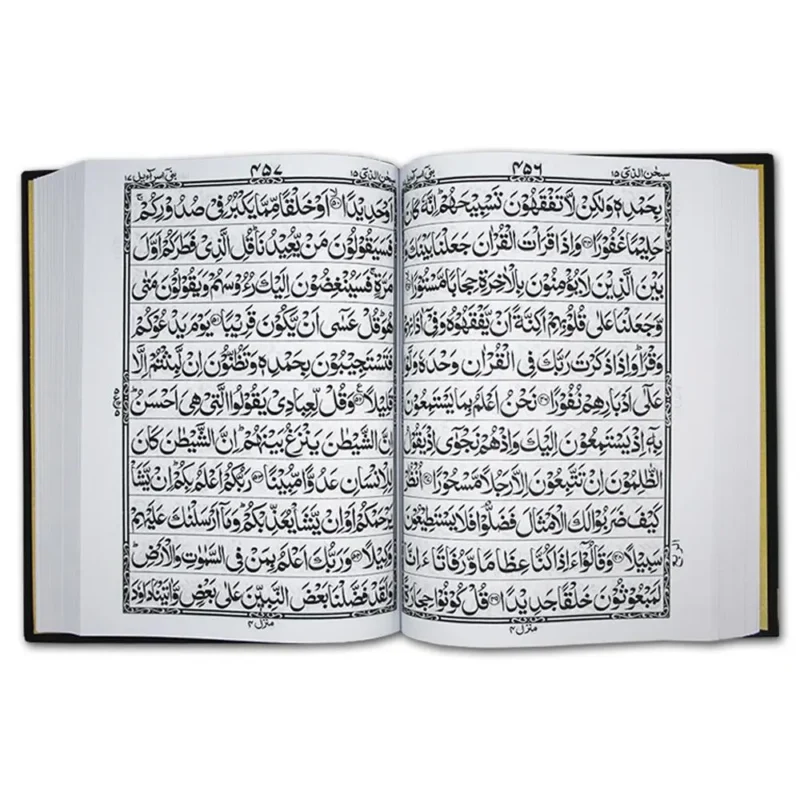 سبحن الذی ۱۵
۴۵۶
بنی اسرآءیل ۱۷
بِحَمْدِهٖ وَلٰكِنْ لَّا تَفْقَهُوْنَ تَسْبِيْحَهُمْ ؕ اِنَّهٗ كَانَ
حَلِيْمًا غَفُوْرًا ﴿۴۴﴾ وَاِذَا قَرَاْتَ الْقُرْاٰنَ جَعَلْنَا بَيْنَكَ
بَيْنَ الَّذِيْنَ لَا يُؤْمِنُوْنَ بِالْاٰخِرَةِ حِجَابًا مَّسْتُوْرًا
وَّجَعَلْنَا عَلٰى قُلُوْبِهِمْ اَكِنَّةً اَنْ يَّفْقَهُوْهُ وَفِىْۤ اٰذَانِهِمْ
وَقْرًا ؕ وَاِذَا ذَكَرْتَ رَبَّكَ فِى الْقُرْاٰنِ وَحْدَهٗ
عَلٰٓى اَدْبَارِهِمْ نُفُوْرًا ﴿۴۶﴾ نَحْنُ اَعْلَمُ بِمَا يَسْتَمِعُوْنَ
بِهٖۤ اِذْ يَسْتَمِعُوْنَ اِلَيْكَ وَاِذْ هُمْ نَجْوٰٓى اِذْ يَقُوْلُ
الظّٰلِمُوْنَ اِنْ تَتَّبِعُوْنَ اِلَّا رَجُلًا مَّسْحُوْرًا ﴿۴۷﴾ اُنْظُرْ
كَيْفَ ضَرَبُوْا لَكَ الْاَمْثَالَ فَضَلُّوْا فَلَا يَسْتَطِيْعُوْنَ
سَبِيْلًا ﴿۴۸﴾ وَقَالُوْۤا ءَاِذَا كُنَّا عِظَامًا وَّرُفَاتًا ءَاِنَّا
لَمَبْعُوْثُوْنَ خَلْقًا جَدِيْدًا ﴿۴۹﴾ قُلْ كُوْنُوْا حِجَارَةً
الربع
منزل ۴
سبحن الذی ۱۵
۴۵۷
بنی اسرآءیل ۱۷
اَوْ حَدِيْدًا ﴿۵۰﴾ اَوْ خَلْقًا مِّمَّا يَكْبُرُ فِىْ صُدُوْرِكُمْ ۚ
فَسَيَقُوْلُوْنَ مَنْ يُّعِيْدُنَا ؕ قُلِ الَّذِىْ فَطَرَكُمْ اَوَّلَ
مَرَّةٍ ۚ فَسَيُنْغِضُوْنَ اِلَيْكَ رُءُوْسَهُمْ وَيَقُوْلُوْنَ مَتٰى
هُوَ ؕ قُلْ عَسٰٓى اَنْ يَّكُوْنَ قَرِيْبًا ﴿۵۱﴾ يَوْمَ يَدْعُوْكُمْ
فَتَسْتَجِيْبُوْنَ بِحَمْدِهٖ وَتَظُنُّوْنَ اِنْ لَّبِثْتُمْ اِلَّا
قَلِيْلًا ﴿۵۲﴾ وَقُلْ لِّعِبَادِىْ يَقُوْلُوا الَّتِىْ هِىَ اَحْسَنُ ؕ
اِنَّ الشَّيْطٰنَ يَنْزَغُ بَيْنَهُمْ ؕ اِنَّ الشَّيْطٰنَ كَانَ
لِلْاِنْسَانِ عَدُوًّا مُّبِيْنًا ﴿۵۳﴾ رَبُّكُمْ اَعْلَمُ بِكُمْ ؕ اِنْ يَّشَاْ
يَرْحَمْكُمْ اَوْ اِنْ يَّشَاْ يُعَذِّبْكُمْ ؕ وَمَاۤ اَرْسَلْنٰكَ عَلَيْهِمْ
وَكِيْلًا ﴿۵۴﴾ وَرَبُّكَ اَعْلَمُ بِمَنْ فِى السَّمٰوٰتِ وَالْاَرْضِ ؕ
وَلَقَدْ فَضَّلْنَا بَعْضَ النَّبِيّٖنَ عَلٰى بَعْضٍ وَّاٰتَيْنَا دَاوٗدَ
منزل ۴